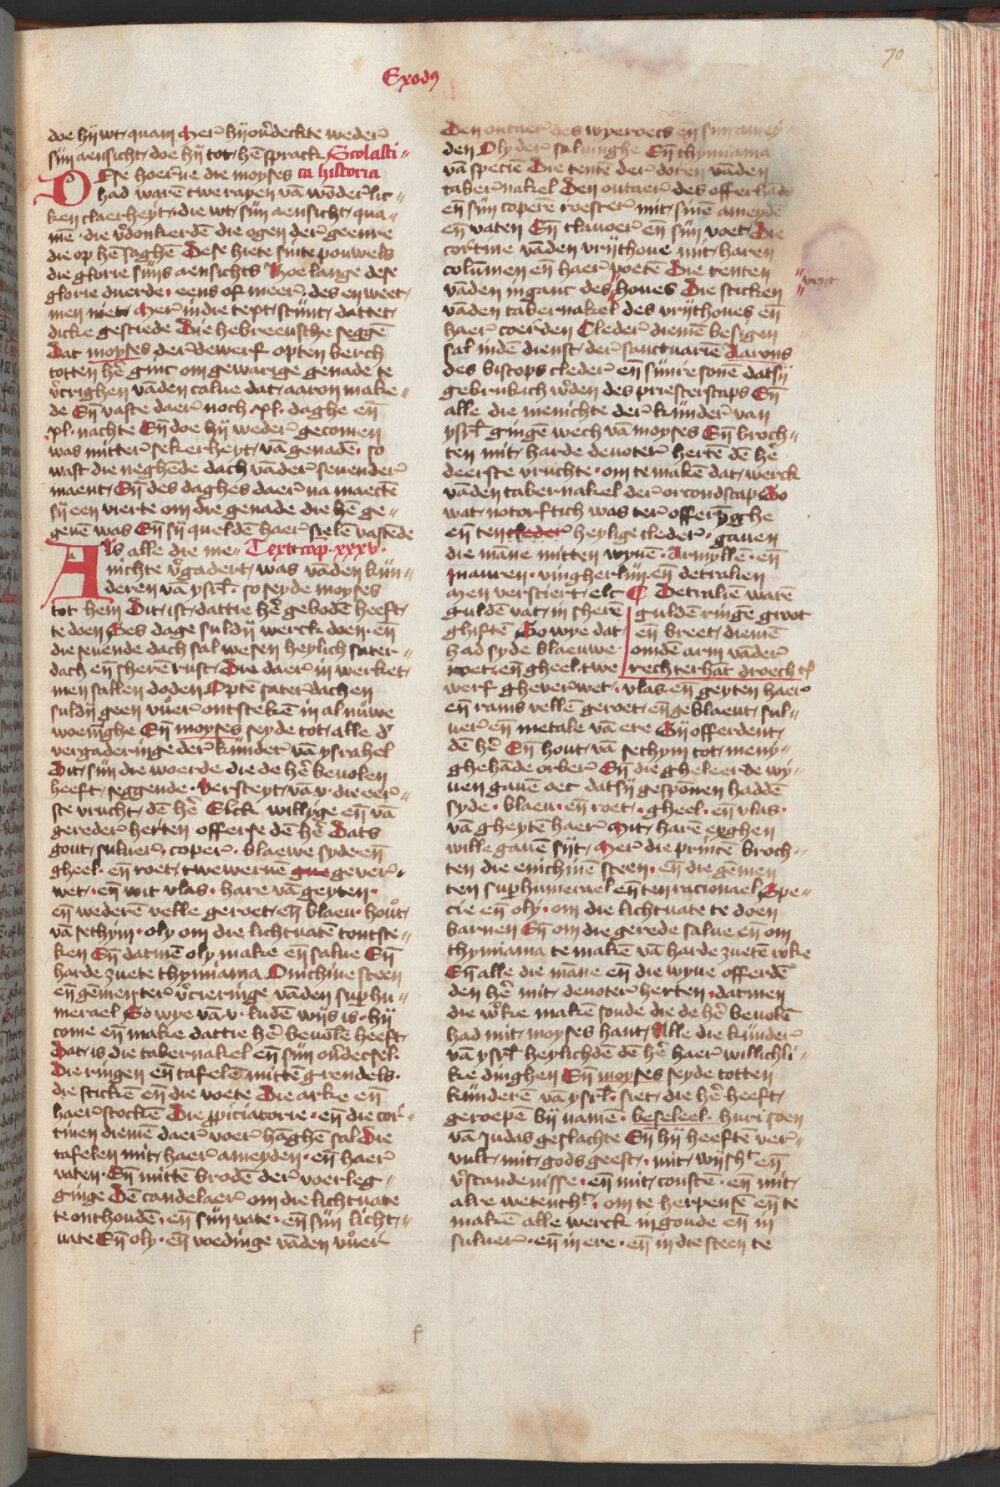 70
Exodus
doe hij wt quam Mer hij ou̾deckte weder
sijn aensicht doe hij tot hē sprack Scolasti
DEse hoerne die moyses ca historia
had warē twe rayen vā wōderlic
ken claerheyt die wt sijn aensicht qua
mē die v̾donkerdē die ogen der geenre
die op hē saghē Dese hiete sinte pouwels
die glorie sijns aensichts Hoe lange dese
glorie duerde eens of meer des en weet
men niet Mer in die text stūnt dattet
dicke gestiede Die hebreensche seggē
Dat moyses derdewerf opten berch
totten hē ginc om gewarige genade te
v̾crighen vāden calue dat aaron make
de Eñ vaste daer noch xl daghe eñ
xl nachte Eñ doe hij weder gecomen
was mitter sekerheyt vā genadē so
wast die neghēde dach vāder seuender
maent Eñ des daghes daer na maectē
sij een vierte om die genade die hē ge
geuē was Eñ sij queldē haer sielē vastēde
ALs alle die me Text cap xxxv
nichte v̾gadert was vāden kijn
deren vā ysrl so seyde moyses
tot hem Dit ist dattie hē gebodē heeft
te doen Ses dage suldij werck doen eñ
die seuende dach sal wesen heylich sater
dach eñ sherē rust Die daer in werket
men sallen doden Optē saterdachen
suldij geen vuer ontstekē in al nuwe
woenīghe Eñ moyses seyde tot alle d
vergaderinge der kijnder vā ysrahel
Dit sijn die woerde die de hē beuolen
heeft seggende Versteyt vā v die eer
ste vrucht dē hē Elck willige eñ vā
gereder herten offerse dē hē Dats
gout suluer coper blaewe syde eñ
gheel eñ roet twewerue que geuer
wet eñ wit vlas hare vā geyten
eñ wederē velle geroet eñ blaeu hout
vā sethym oly om die lichtuatē tontste
ken Eñ datmē oly make eñ salue Eñ
harde zuete thymiama Onichine steen
eñ gēmen ter v̾cieringe vāden suphu
merael So wye vā v ludē wijs is hij
come eñ make dattie hē beuolē heeft
Dat is die tabernakel eñ sijn ou̾decsel
Die ringen eñ tafelē mittē grendels
die stickē eñ die voete Die arke eñ
haer stockē Die ppiciatorie eñ die cor
tinen diemē daer voer hāghē sal Die
tafelen mit haer ameyden eñ haer
vaten Eñ mittē brodē der voerleg
ginge Dē candelaer om die lichtuate
te onthoudē eñ sijn vate eñ sijn licht
uate Eñ oly eñ voedinge vāden vuer
Den outaer des wyeroecs eñ sijn amey
den Oly der saluinghe Eñ thymiama
vā speciē Die tente der doren vāden
tabernakel Den outaer des offerhāde
eñ sijn coperē roester mit sinē ameydē
eñ vaten Eñ clauoer eñ sijn voet Die
cortine vāden vrijthoue mit haren
colūmen eñ haer voetē Die tenten
vāden inganc des houes Die sticken
vrijt
vāden tabernakel des vrijthoues eñ
haer coerden Cleder diemē besigen
sal indē dienst der sanctuariē Aarons
des biscops cleder eñ sijnre sonē datsij
gebruken w̾den des priesterscaps Eñ
alle die menichte der kijnder van
ysrl gingē wech vā moyses Eñ broch
ten mit harde deuoter hertē dē hē
deerste vruchte om te makē dat werck
vāden tabernakel der orcondscap So
wat notorftich was ter offerijghe
eñ ten cleder heylige cleder gauen
die māne mitten wyuē Armyllē eñ
nauren vingherlijn eñ detralien
men versiert elc C Detralien warē
guldē vat in sherē guldē ringē groot
ghiftē So wye dat eñ breet diemē
had syde blaeuwe omdē arm vāder
roet eñ gheel twe rechterhāt droech
werf gheverwet vlas eñ geyten haer
eñ rams vellē geroet eñ geblaeut sul
uer eñ metale vā ere Sij offerdent
dē hē Eñ hout vā sethym tot meny
ghehāde orber Eñ die gheleerde wy
uen gauē oec datsij gesponen haddē
syde blaeu eñ roet gheel eñ vlas
vā gheytē haer Mit harē eyghen
wille gauē sijt Mer die prīcē broch
ten die enichinē steen eñ die gēmen
ten suphumerael eñ ten racionael Spe
cie eñ oly om die lichtuate te doen
barnen Eñ om die gerede salue eñ om
thymiama te makē vā harde zuetē roke
Eñ alle die māne eñ die wyue offerdē
den hē mit deuoter herten datmen
die w̾ke makē soude die de hē beuolē
had mit moyses hant Alle die kijnder
vā ysrl heylichdē dē hē haer willichli
ke dinghen Eñ moyses seyde totten
kijnderē vā ysrl siet die hē heeft
geroepē bij namē beseleel huri soen
vā Judas geslachte Eñ hij heeftē ver
vult mit gods geest mit wijsht eñ
v̾standenisse eñ mit conste eñ mit
alre wetentht om te herpensē eñ te
makē alle werck in goude eñ in
suluer eñ in ere eñ in die steen te
f